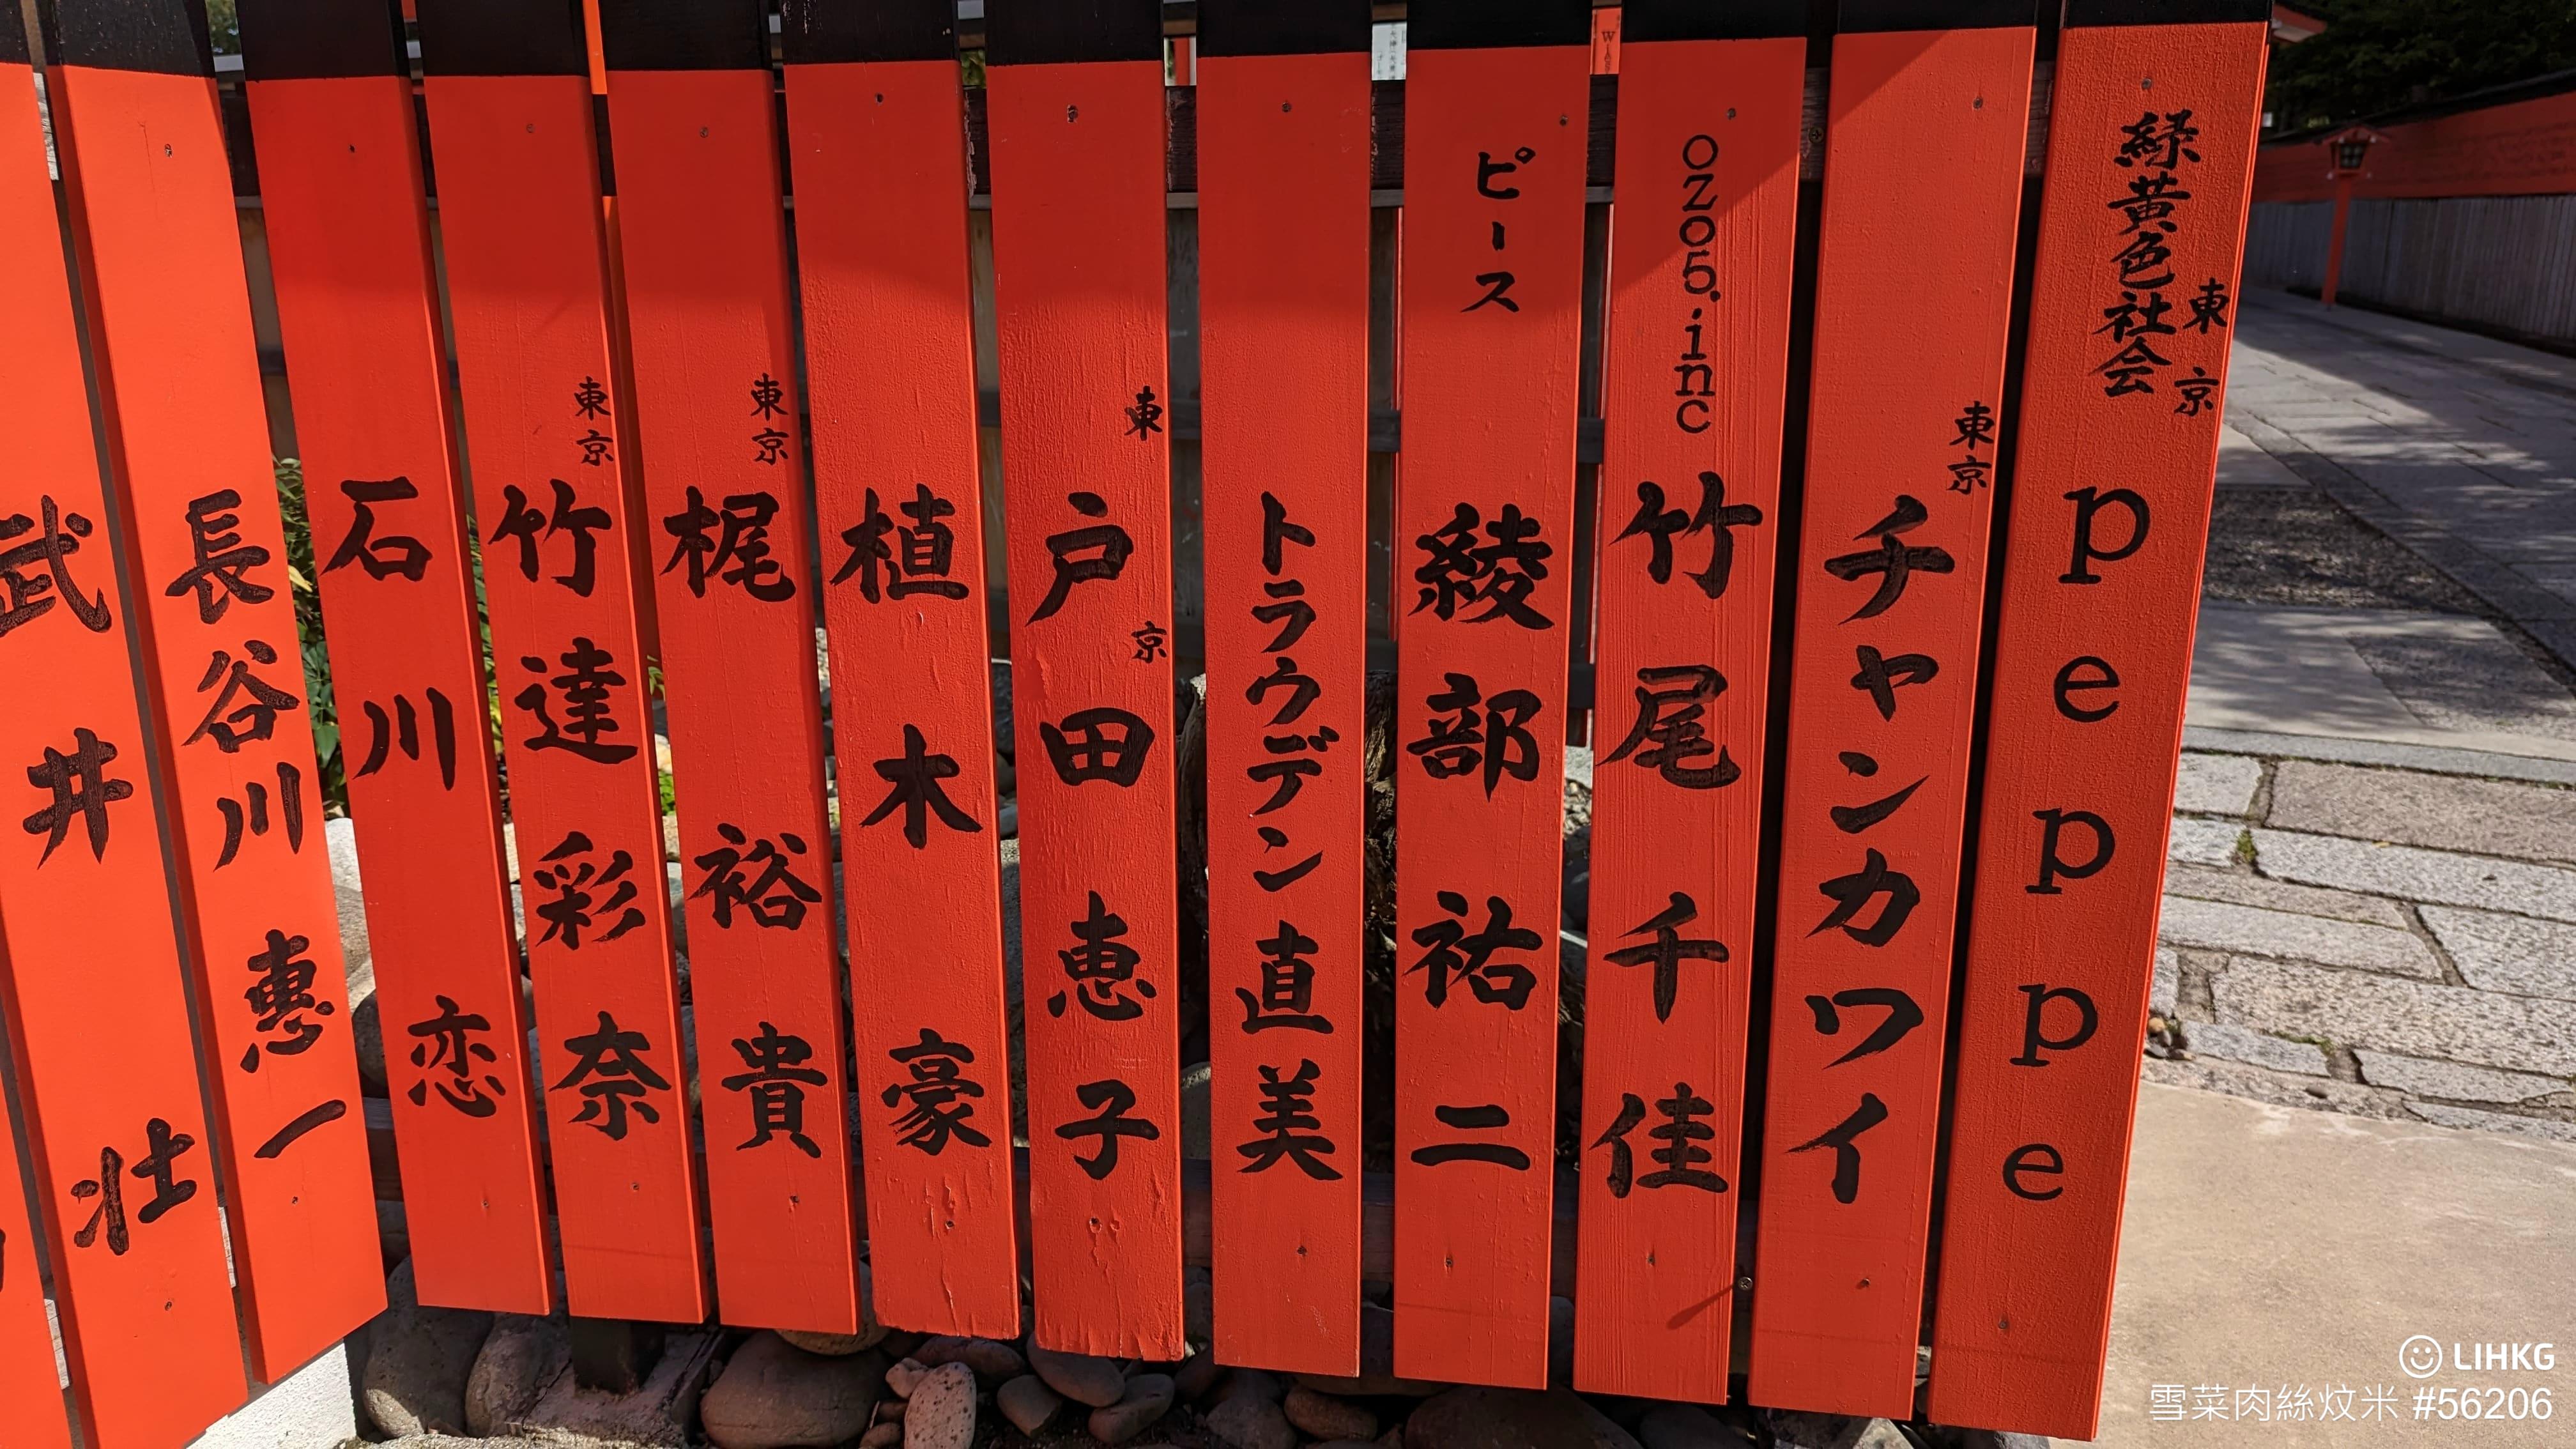 緑黄色社会
東京
peppe
東京
チャンカワイ
ozo5.inc
竹尾千佳
ピース
綾部祐二
トラウデン直美
東京
戸田恵子
植木豪
東京
梶裕貴
東京
竹達彩奈
石川恋
長谷川惠一
武井壮
LIHKG
雪菜肉絲炆米 #56206